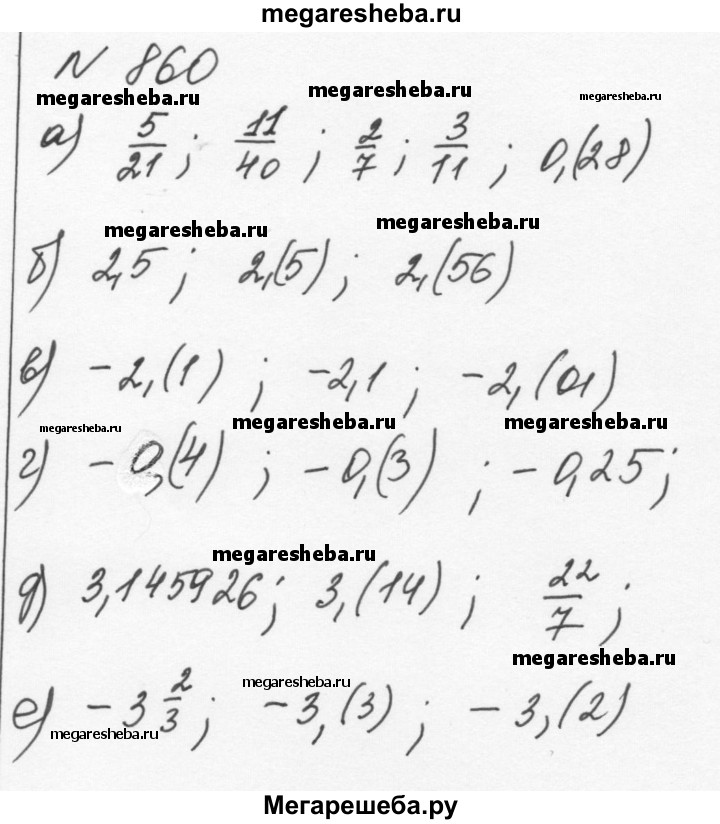 megaresheba.ru
N 860
megaresheba.ru megaresheba.ru megaresheba.ru
а) 5/21 ; 11/40 ; 2/7 ; 3/11 ; 0,(28)
megaresheba.ru megaresheba.ru
б) 2,5 ; 2,(5) ; 2,(56)
в) -2,(1) ; -2,1 ; -2,(01)
megaresheba.ru megaresheba.ru megaresheba.ru
г) -0,(4) ; -0,(3) ; -0,25 ;
megaresheba.ru
д) 3,145926 ; 3,(14) ; 22/7 ;
megaresheba.ru
е) -3 2/3 ; -3,(3) ; -3,(2)
megaresheba.ru
megaresheba.ru
Мегарешеба.ру